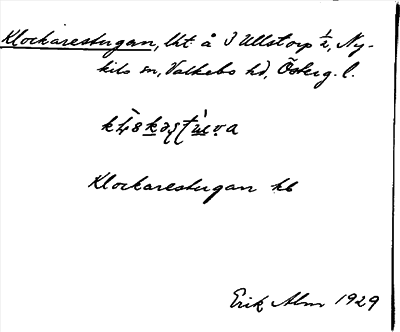 Klockarestugan, lht å J Ullstorp 1/2, Ny-
kils sn, Valkebo hd, Österg. l.
Klockarestugan kb
Erik Alm 1929